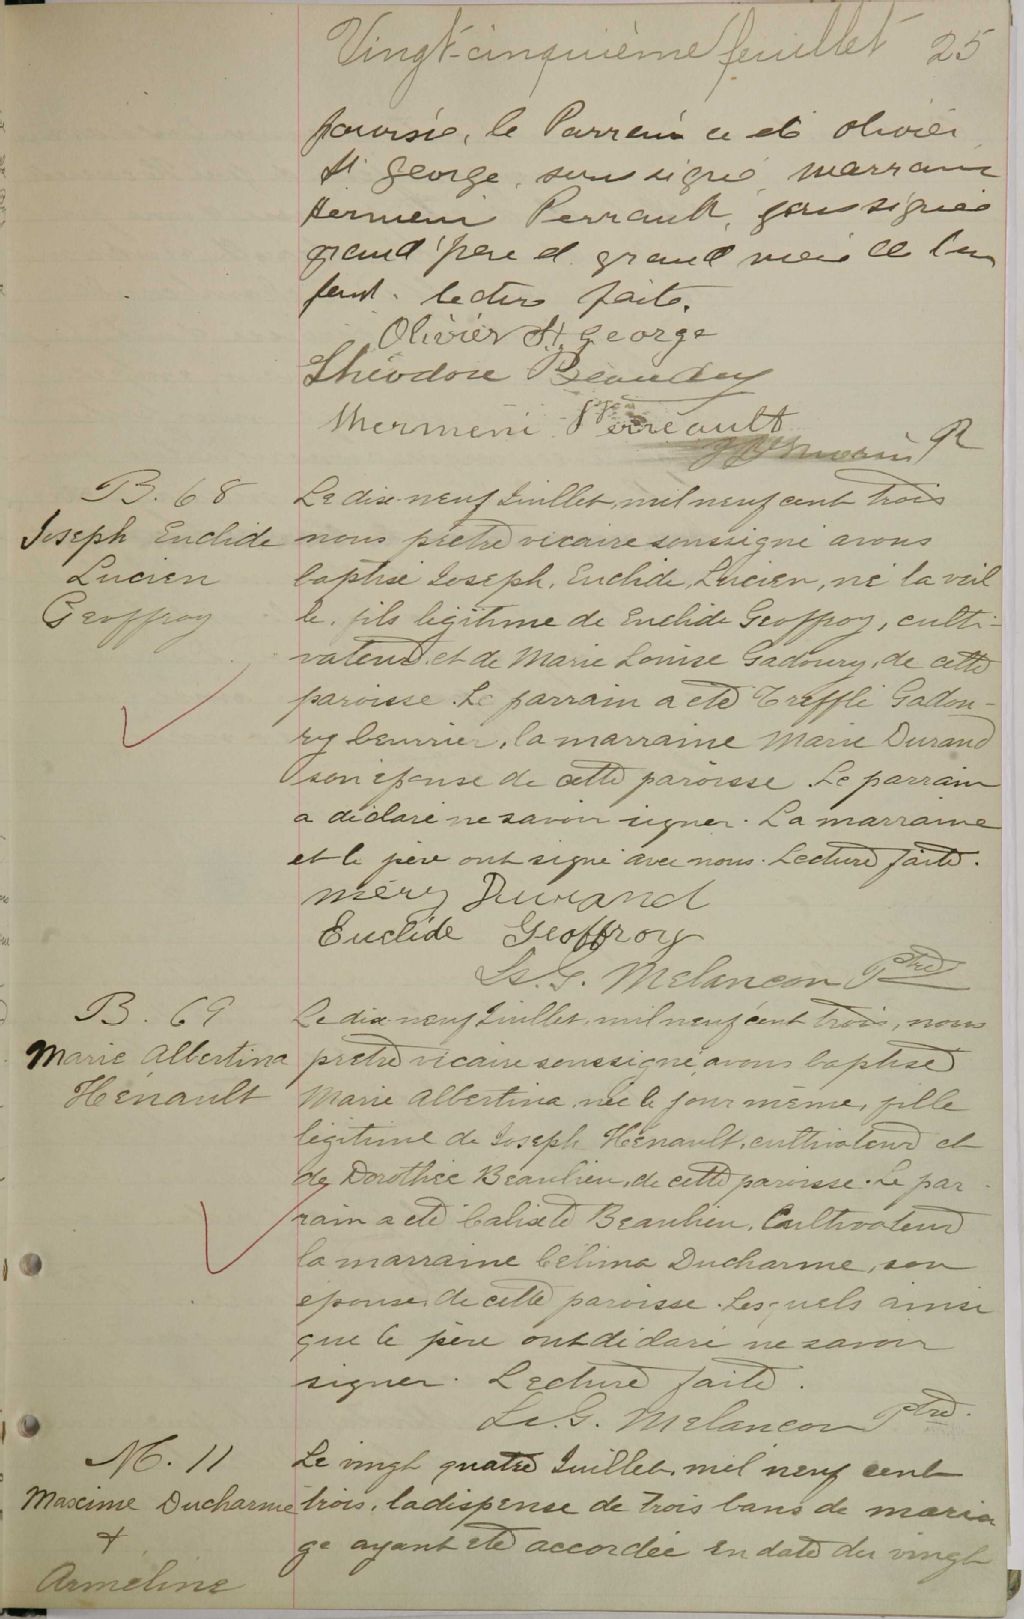 Vingt-cinquième feuillet 25
paroisse, le Parrain a eté olivier
St George, soussigné, marraine
Hermeni Perrault, soussignée
grand'père et grand mère de l'en
fant. lecture faite.
Olivier St. George
Théodore Beaudry
Mermeni Perreault
Ptre
B. 68
Joseph Euclide
Lucien
Geoffroy
Le dix-neuf Juillet, mil neuf cent trois
nous prêtre vicaire soussigné avons
baptisé Joseph, Euclide, Lucien, né la veil
le, fils légitime de Euclide Geoffroy, culti-
vateur et de Marie Louise Gadoury, de cette
paroisse. Le parrain a eté Trefflé Gadou-
ry beurrier, la marraine Marie Durand
son épouse de cette paroisse. Le parrain
a déclaré ne savoir signer. La marraine
et le père ont signé avec nous. Lecture faite.
méry Durand
Euclide Geoffroy
Ls. G. Melancon Ptre
B. 69
Marie Albertina
Hénault
Le dix-neuf Juillet, mil neuf cent trois, nous
prêtre vicaire soussigné, avons baptisé
Marie Albertina née le jour même, fille
légitime de Joseph Hénault, cultivateur et
de Dorothée Beaulieu, de cette paroisse. Le par-
rain a eté Calixte Beaulieu, Cultivateur
la marraine Célima Ducharme, son
épouse, de cette paroisse. Lesquels ainsi
que le père ont déclaré ne savoir
signer. Lecture faite.
Ls. G. Melancon Ptre.
M. 11
Maxime Ducharme
+
Arméline
Le vingt quatre Juillet, mil neuf cent
trois, la dispense de trois bans de maria
ge ayant eté accordée en date du vingt